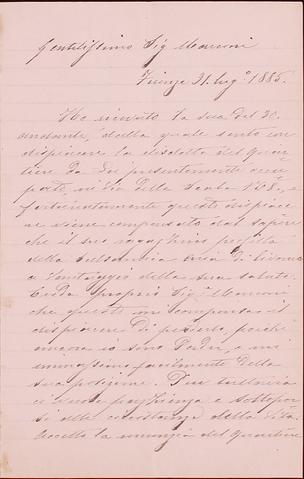 Gentilissimo Sig Marconi
Firenze 21. Lug.º 1885.
Ho ricevuto la sua del 20.
andante, dalla quale sento con
dispiacere la disdetta del Quar
tiere da Lei presentemente occu
pato, in Via della Scala Nº 8.,
fortunatamente questo dispiace
re viene compensato dal sapere
che il suo ragazzino profitta
della salsoiodica aria di Livorno
a vantaggio della sua salute.
Creda proprio Sig.ª Marconi
che questo mi compensa il
dispiacere di perderlo, perchè
ancora io sono Padre, e mi
immedesimo facilmente della
sua posizione. Pur tuttavia
ci vuole pazienza e sottopor
si alle circostanze della vita.
Accetto la renunzia del Quartiere